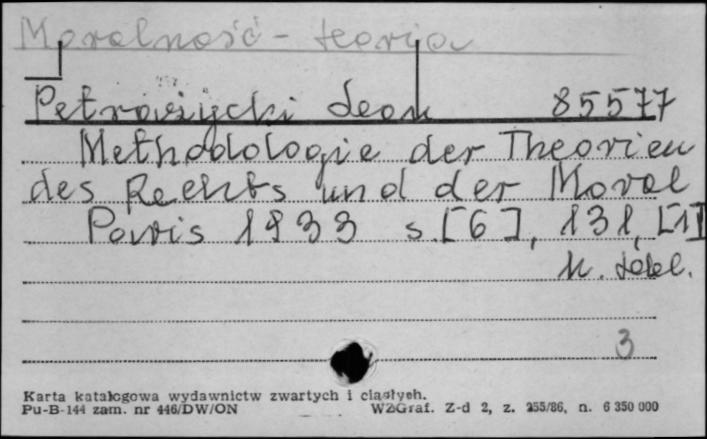 Moralność - teoria
Petrażycki Leon 85577
Methodologie der Theorien
des Rechts und der Moral
Paris 1933 s. [6], 131, [1]
3
Karta katalogowa wydawnictw zwartych i ciągłych.
Pu-B-144 zam. nr 446/DW/ON WZGraf. Z-d 2, z. 255/86, n. 6 350 000